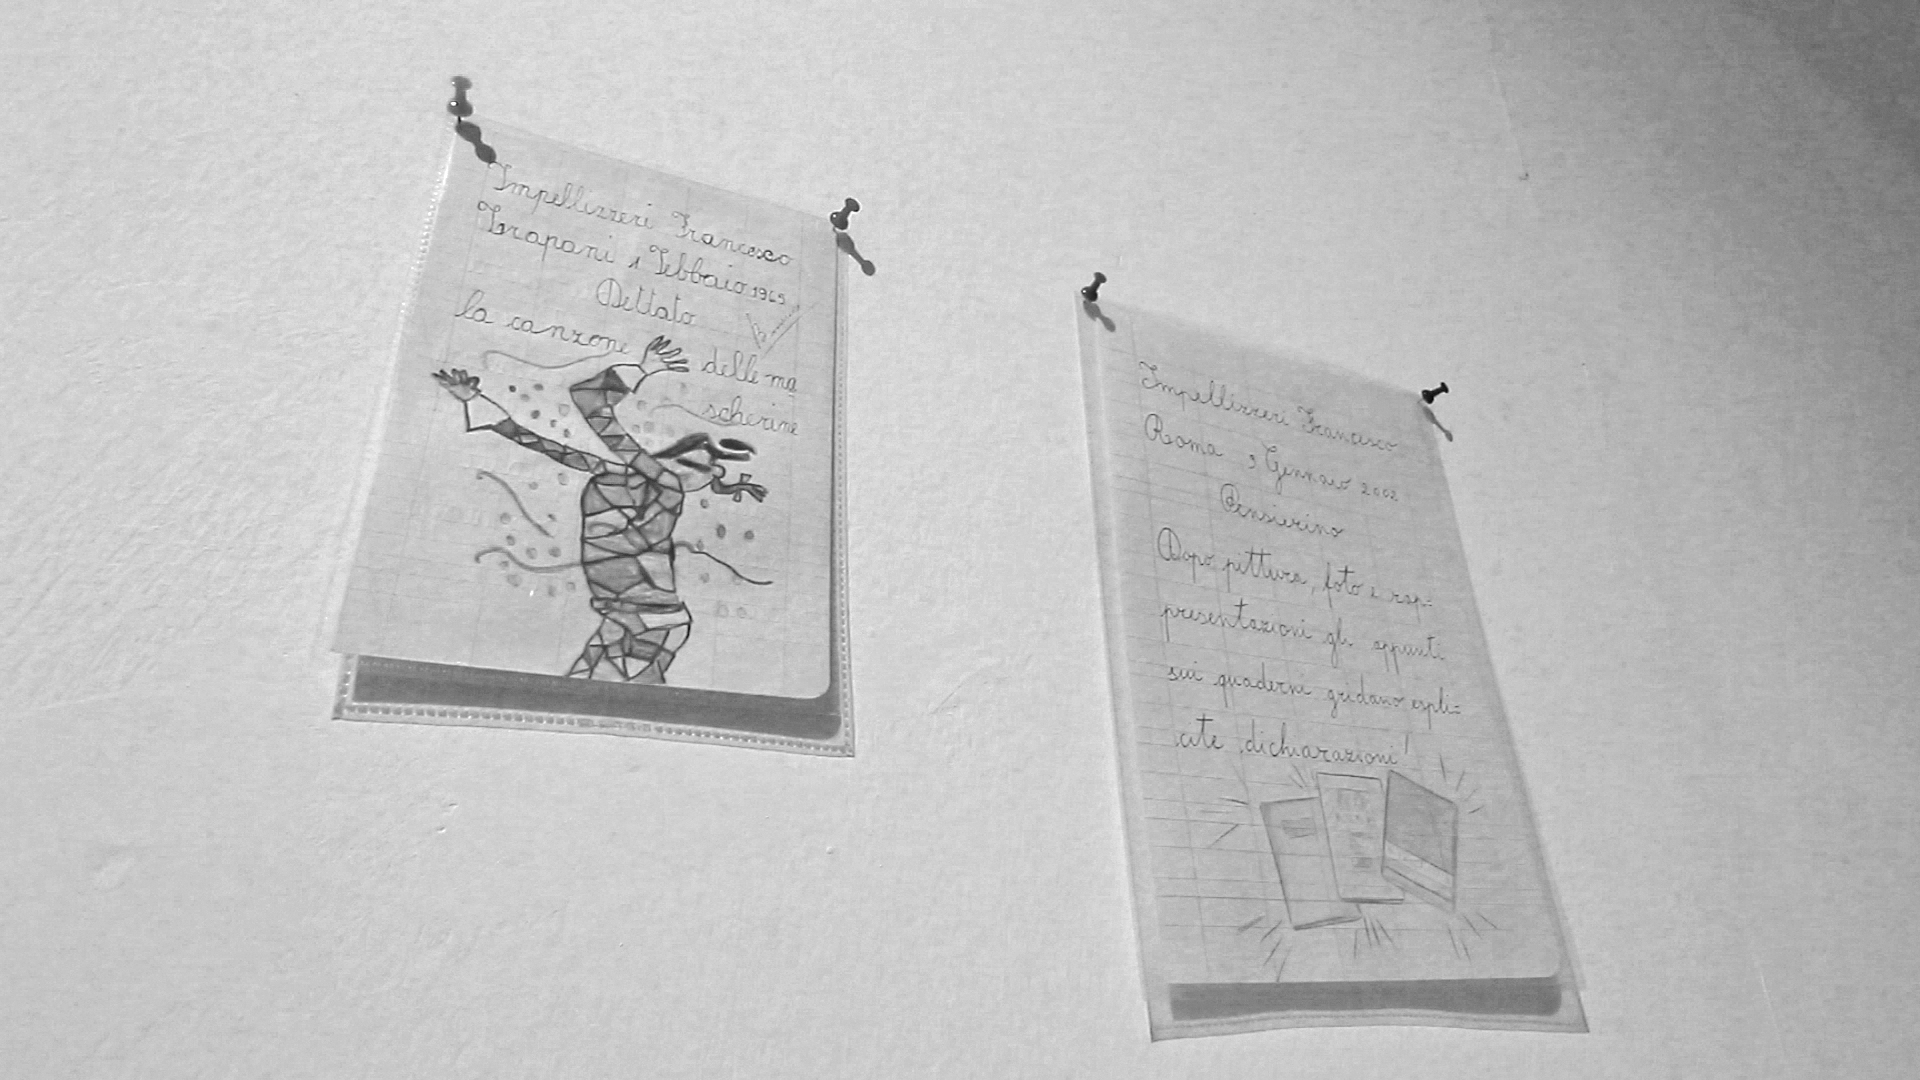 Impellizzeri Francesco
Trapani 1 Febbaio 1965
Dettato
la canzone delle ma
scherine
Impellizzeri Francesco
Roma 3 Gennaio 2002
Pensierino
Dopo pittura, foto e rap=
presentazioni gli appunti
sui quaderni gridano espli=
cite dichiarazioni!